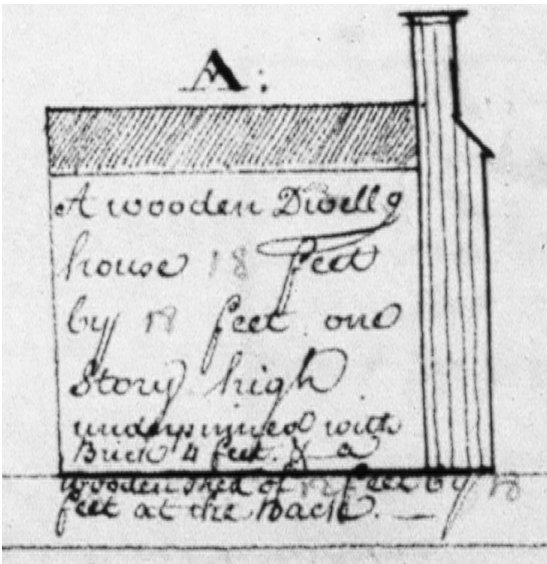 A:
A wooden Dwellg
house 18 feet
by 18 feet one
Story high
underpinned with
Brick 4 feet. & a
wooden shed of 12 feet by 18
feet at the Back.